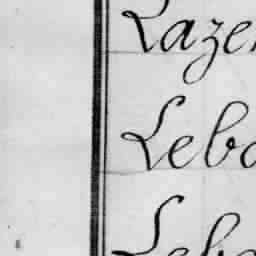 Lazer
Lebo
Lebo